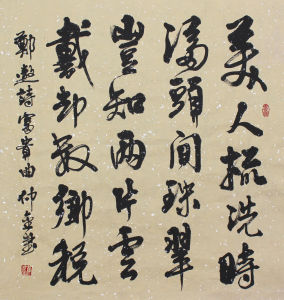 美人梳洗時
滿頭間珠翠
豈知兩片雲
戴却數鄉稅
鄭遨詩富貴曲